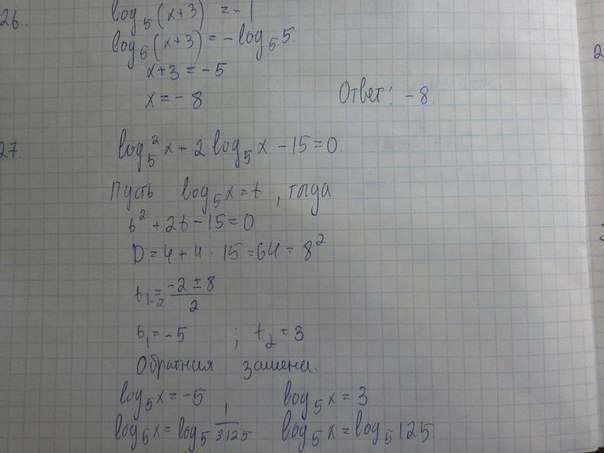 26. log₅(x+3) = -1
log₅(x+3) = -log₅5
x+3 = -5
x = -8
Ответ: -8
27 log₅²x + 2log₅x - 15 = 0
Пусть log₅x = t, тогда
t² + 2t - 15 = 0
D = 4 + 4 · 15 = 64 = 8²
t₁,₂ = (-2 ± 8)/2
t₁ = -5 ; t₂ = 3
Обратная замена.
log₅x = -5 log₅x = 3
log₅x = log₅ 1/3125 log₅x = log₅125